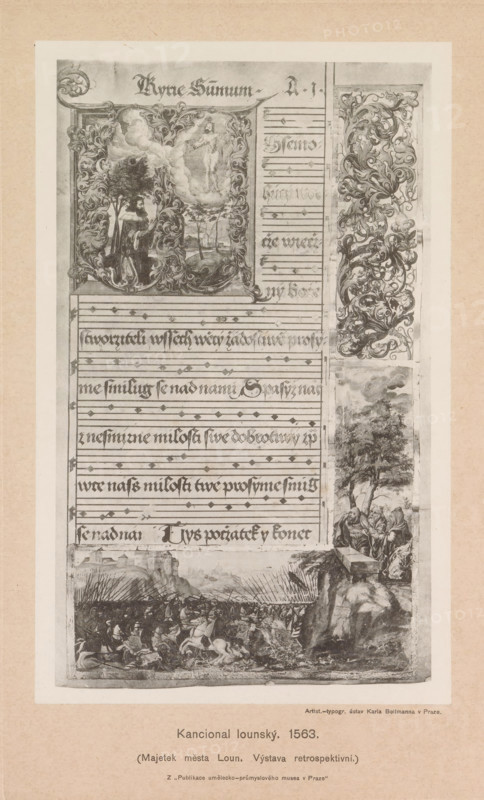 Kyrie Sum̄um A·1·
Wsemo
hucy
cże wiecż
ný Boże
stworziteli wssech wěcý żadostiwě prosý
me smilug se nad nami Spasýż nás
z nesmirne milosti swe dobrotiwý
wte nass milosti twe prosyme smilg
se nad nai Tys pocżatek y konec
Artist.-typogr. ústav Karla Bellmanna v Praze.
Kancional lounský. 1563.
(Majetek města Loun. Výstava retrospektivní.)
Z „Publikace umělecko-průmyslového musea v Praze"